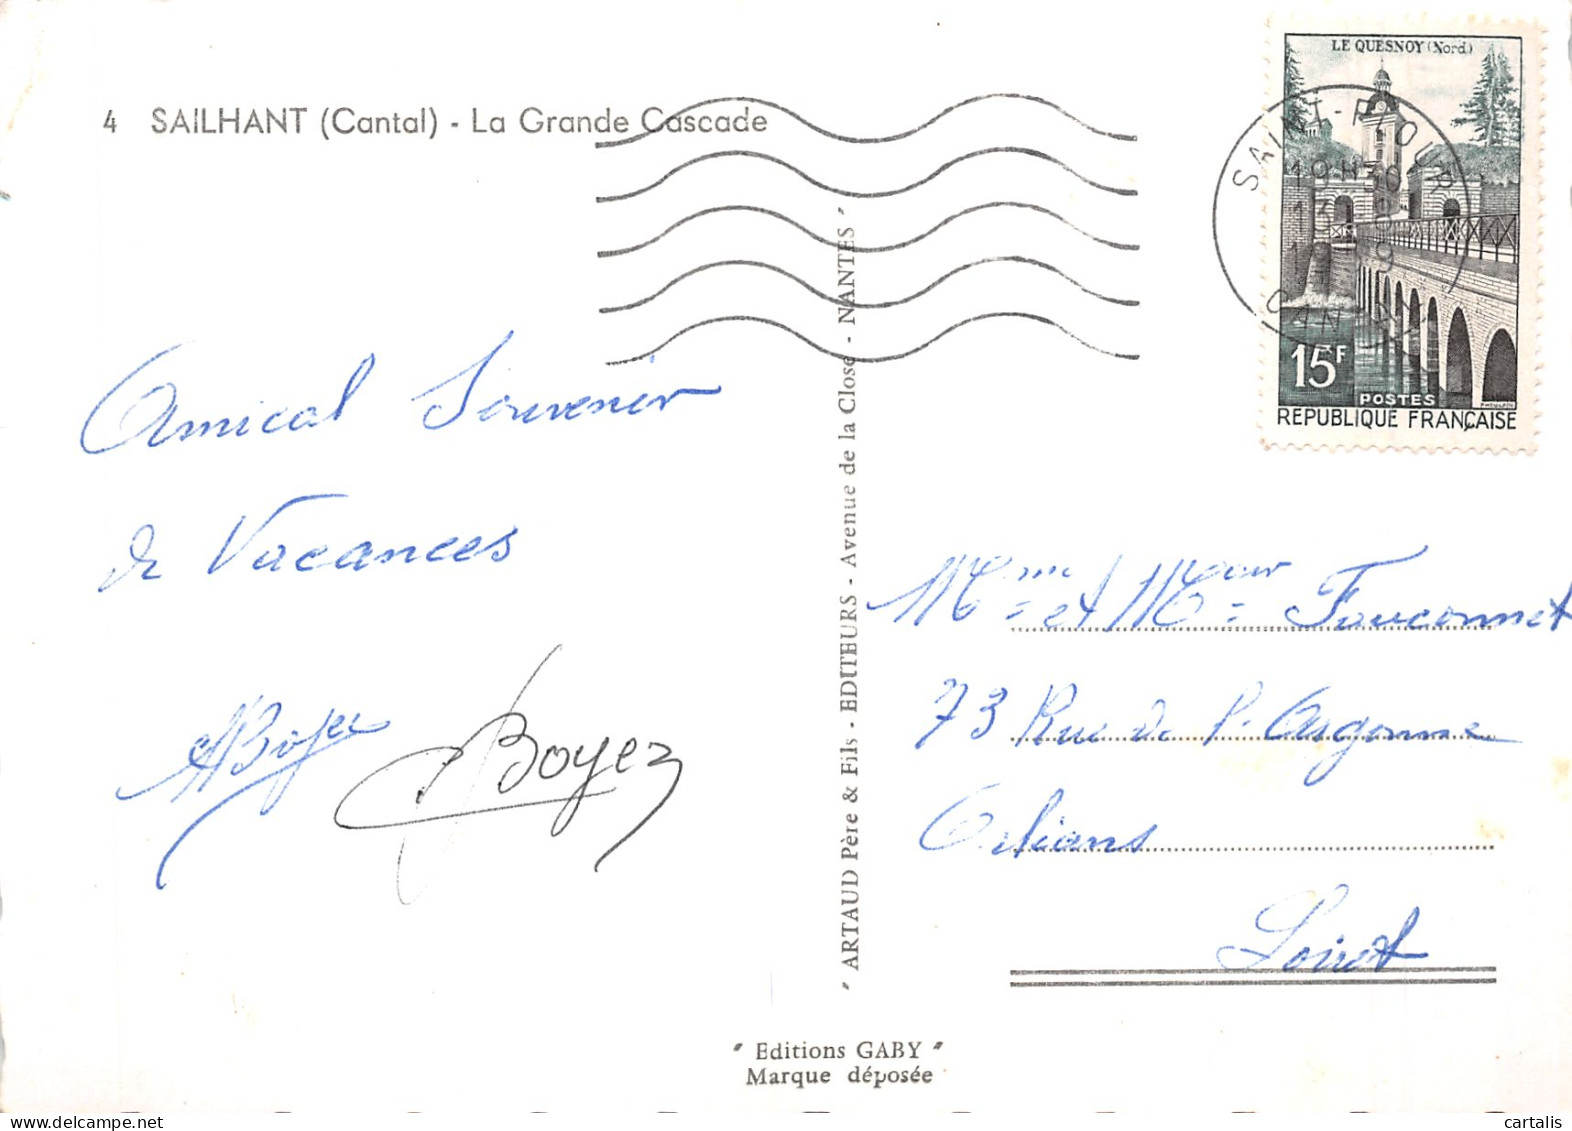 4 SAILHANT (Cantal) - La Grande Cascade
LE QUESNOY (Nord)
SAINT-FLOUR
19H30
CANTAL
15F
POSTES
REPUBLIQUE FRANÇAISE
Amical Souvenir
de Vacances
ABoyer
Boyer
" ARTAUD Père & Fils - EDITEURS - Avenue de la Close - NANTES "
Mme et Mr Fauconnet
73 Rue de l'Argonne
Orléans
Loiret
" Editions GABY "
Marque déposée
delcampe.net
cartalis